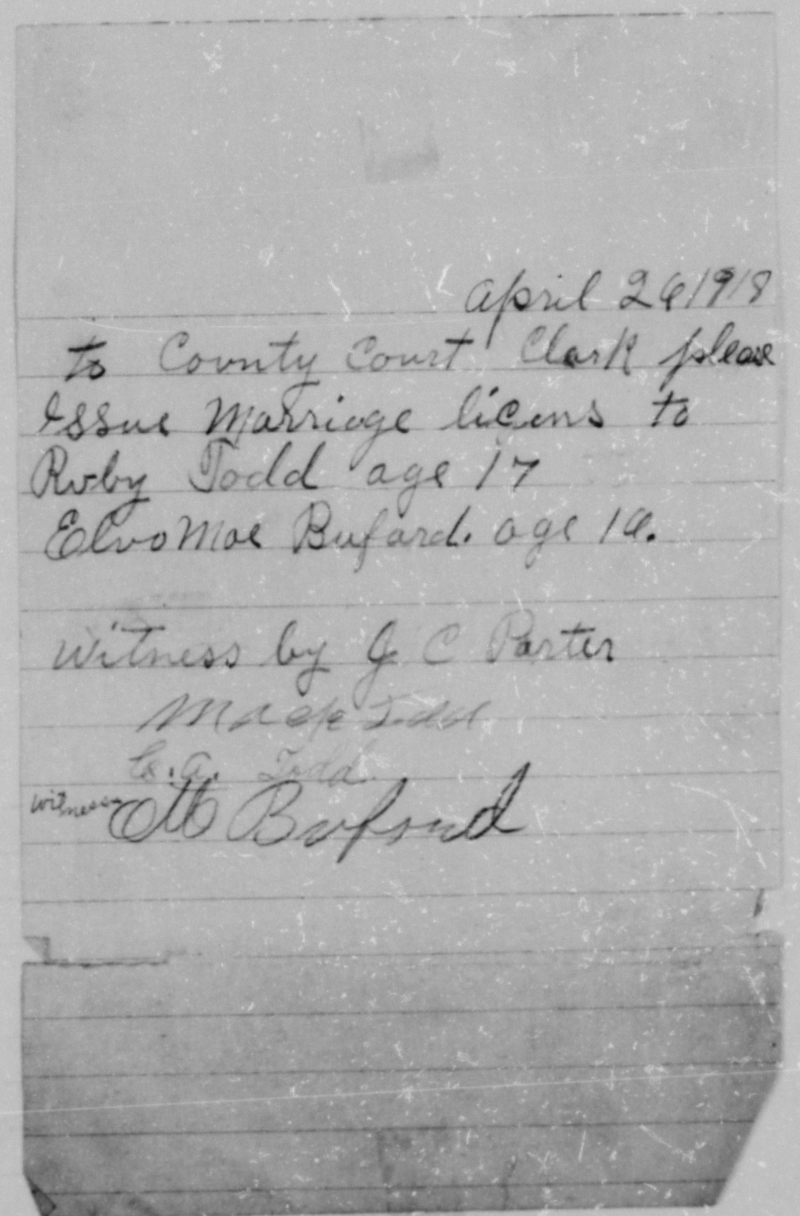 April 26 1918
to County Court Clark please
Issue Marriage licens to
Ruby Todd age 17
Elvo Mae Bufard. age 16.
Witness by J C Porter
Mack Todd
Todd
witness Buford